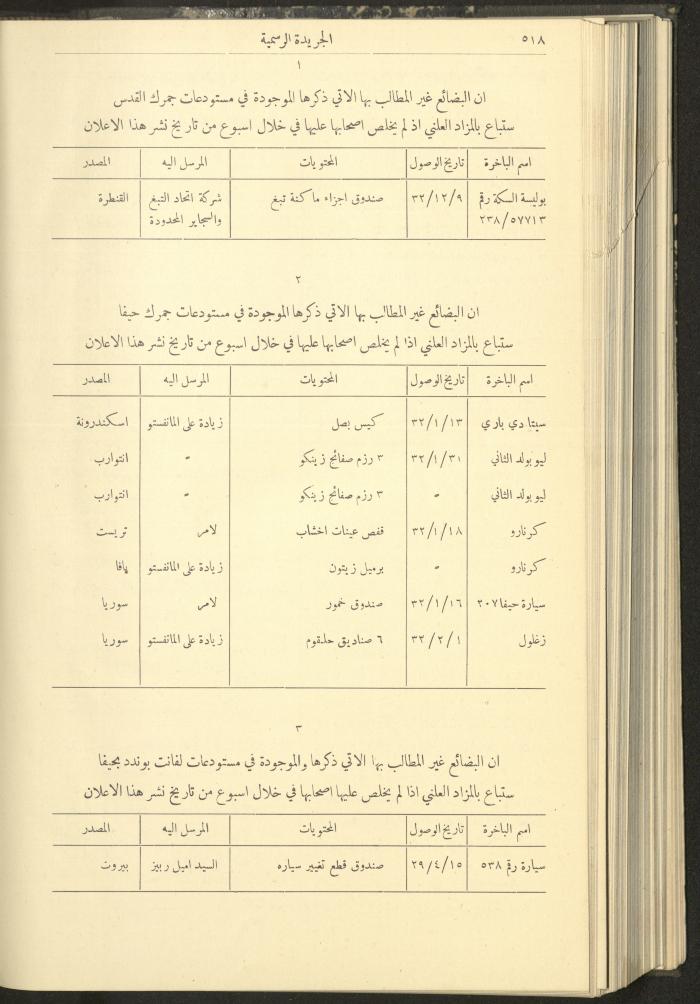 ٥١٨ الجريدة الرسمية
١
ان البضائع غير المطالب بها الاتي ذكرها الموجودة في مستودعات جمرك القدس
ستباع بالمزاد العلني اذ لم يخلص اصحابها عليها في خلال اسبوع من تاريخ نشر هذا الاعلان
اسم الباخرة تاريخ الوصول المحتويات المرسل اليه المصدر
بوليسة السكة رقم ٣٢/١٢/٩ صندوق اجزاء ماكنة تبغ شركة اتحاد التبغ القنطرة
٢٣٨/٥٧٧١٣ والسجاير المحدودة
٢
ان البضائع غير المطالب بها الاتي ذكرها الموجودة في مستودعات جمرك حيفا
ستباع بالمزاد العلني اذا لم يخلص اصحابها عليها في خلال اسبوع من تاريخ نشر هذا الاعلان
اسم الباخرة تاريخ الوصول المحتويات المرسل اليه المصدر
سيتا دي باري ٣٢/١/١٣ كيس بصل زيادة على المانفستو اسكندرونة
ليوبولد الثاني ٣٢/١/٣١ ٣ رزم صفائح زينكو " انتوارب
ليوبولد الثاني " ٣ رزم صفائح زينكو " انتوارب
كرنارو ٣٢/١/١٨ قفص عينات اخشاب لامر تريست
كرنارو " برميل زيتون زيادة على المانفستو يافا
سيارة حيفا ٢٠٧ ٣٢/١/١٦ صندوق خمور لامر سوريا
زغلول ٣٢/٢/١ ٦ صناديق حلقوم زيادة على المانفستو سوريا
٣
ان البضائع غير المطالب بها الاتي ذكرها والموجودة في مستودعات لفانت بوندد بحيفا
ستباع بالمزاد العلني اذا لم يخلص عليها اصحابها في خلال اسبوع من تاريخ نشر هذا الاعلان
اسم الباخرة تاريخ الوصول المحتويات المرسل اليه المصدر
سيارة رقم ٥٣٨ ٢٩/٤/١٥ صندوق قطع تغيير سياره السيد اميل ربيز بيروت